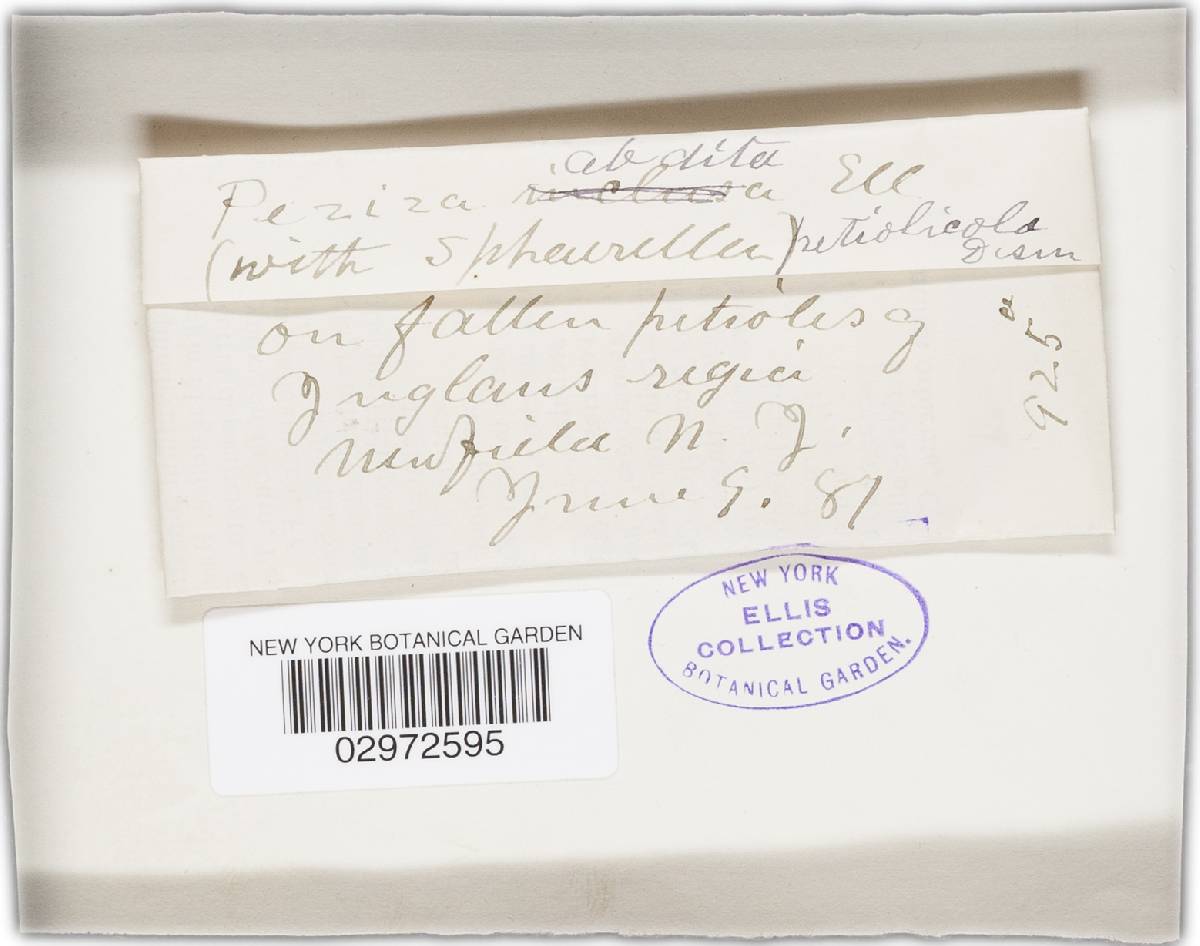 Peziza abdita Ell
(with Sphaerella) petiolicola
Desm
on fallen petioles of
Juglans regia
Newfield N. J.
June 9. 87
925
NEW YORK
ELLIS
COLLECTION
BOTANICAL GARDEN.
NEW YORK BOTANICAL GARDEN
02972595